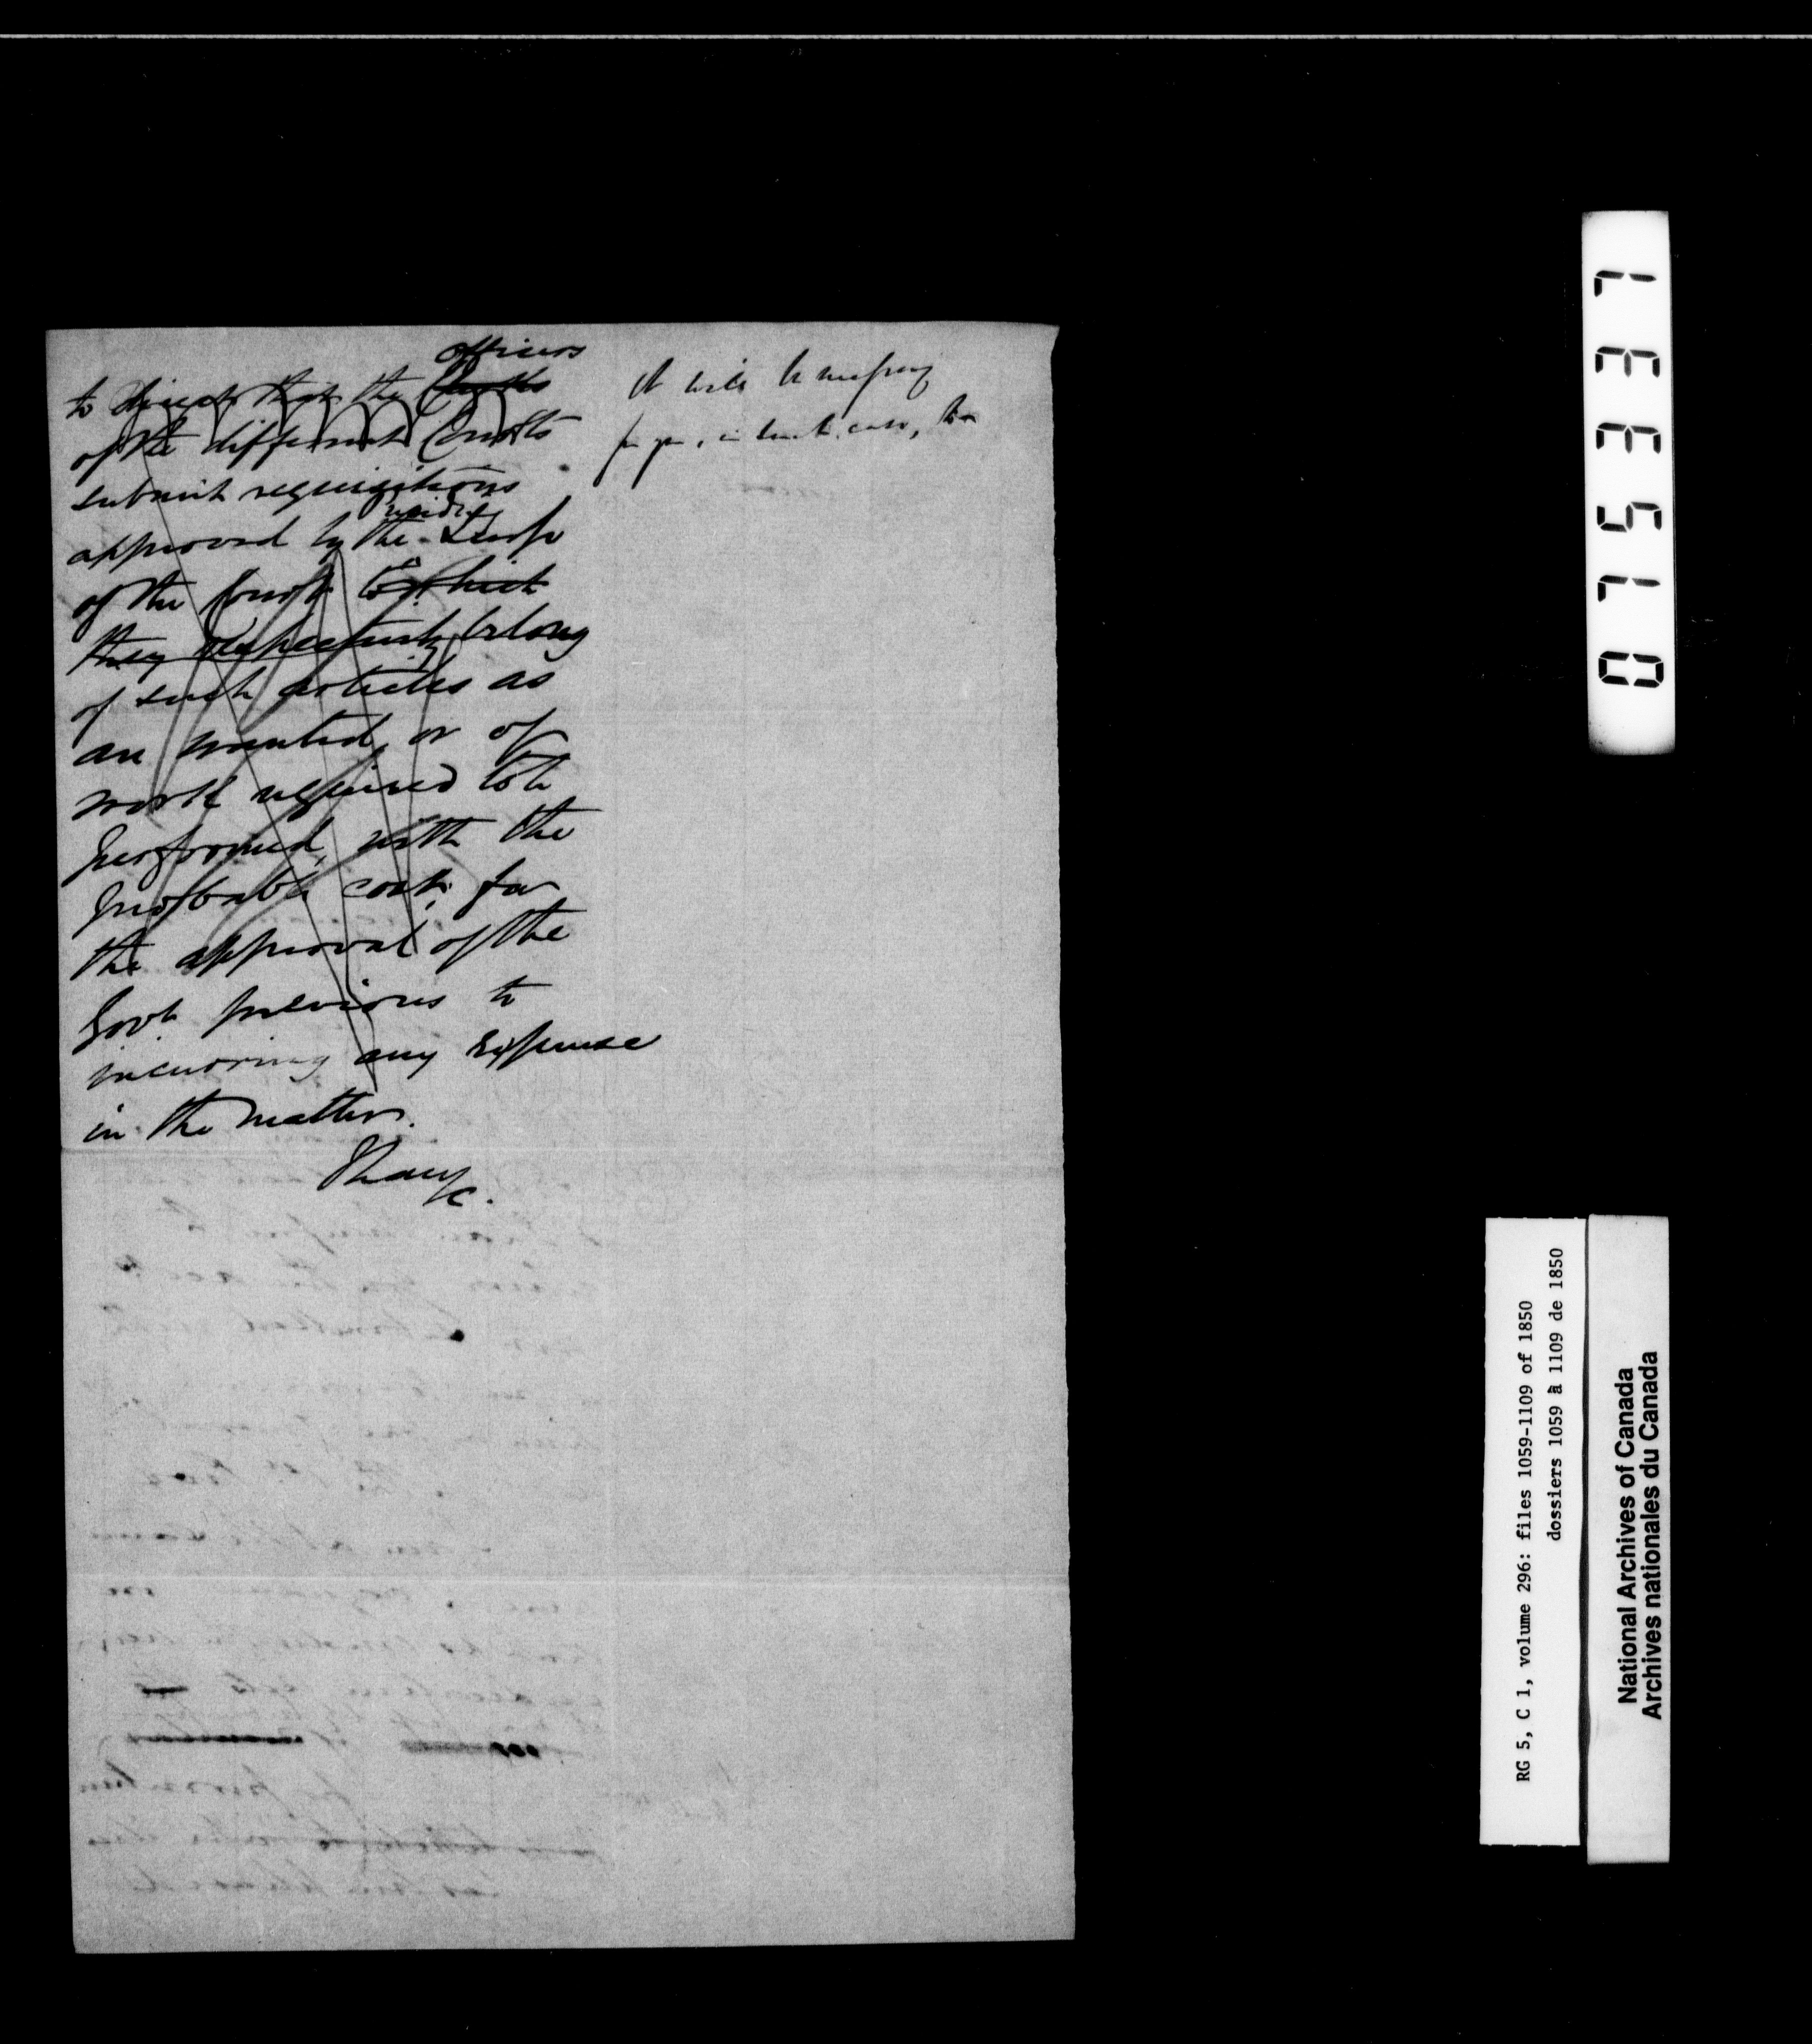 officers
to direct that the Clerks
of the different Courts
submit requisitions
residing
approved by the Judge
of the Court to which
they respectively belong
of such articles as
are wanted, or of
work required to be
performed, with the
probable cost, for
the approval of the
Govt previous to
incurring any expense
in the matter.
I have &c.
It will be necessary
for you, in such case,
017337
RG 5, C 1, volume 296: files 1059-1109 of 1850
dossiers 1059 à 1109 de 1850
National Archives of Canada
Archives nationales du Canada